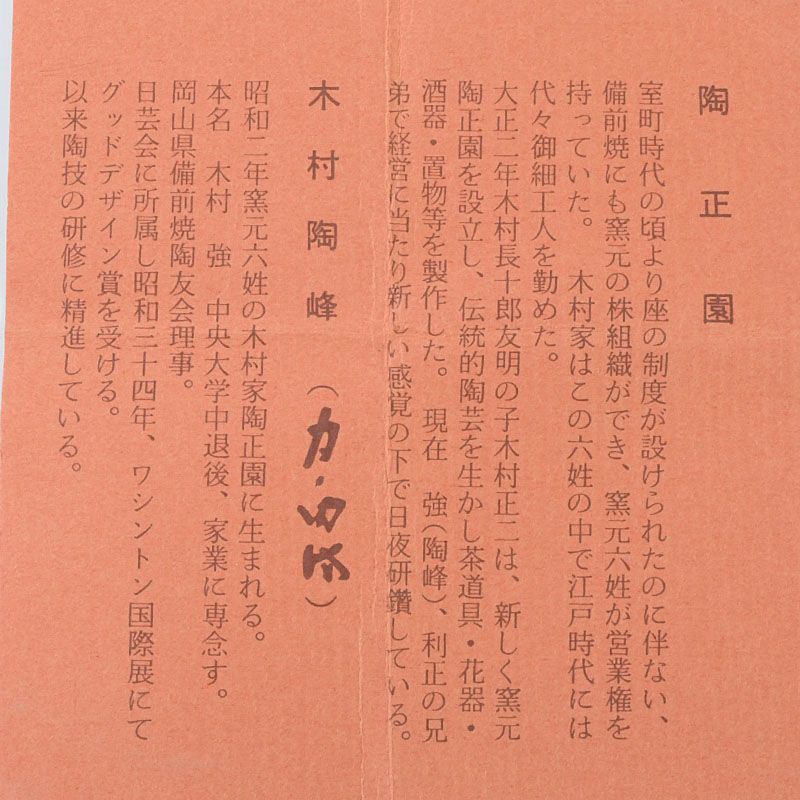 陶正園
室町時代の頃より座の制度が設けられたのに伴ない、
備前焼にも窯元の株組織ができ、窯元六姓が営業権を
持っていた。　木村家はこの六姓の中で江戸時代には
代々御細工人を勤めた。
大正二年木村長十郎友明の子木村正二は、新しく窯元
陶正園を設立し、伝統的陶芸を生かし茶道具・花器・
酒器・置物等を製作した。　現在　強(陶峰)、利正の兄
弟で経営に当たり新しい感覚の下で日夜研鑽している。
木村陶峰（　）
昭和二年窯元六姓の木村家陶正園に生まれる。
本名　木村　強　中央大学中退後、家業に専念す。
岡山県備前焼陶友会理事。
日芸会に所属し昭和三十四年、ワシントン国際展にて
グッドデザイン賞を受ける。
以来陶技の研修に精進している。